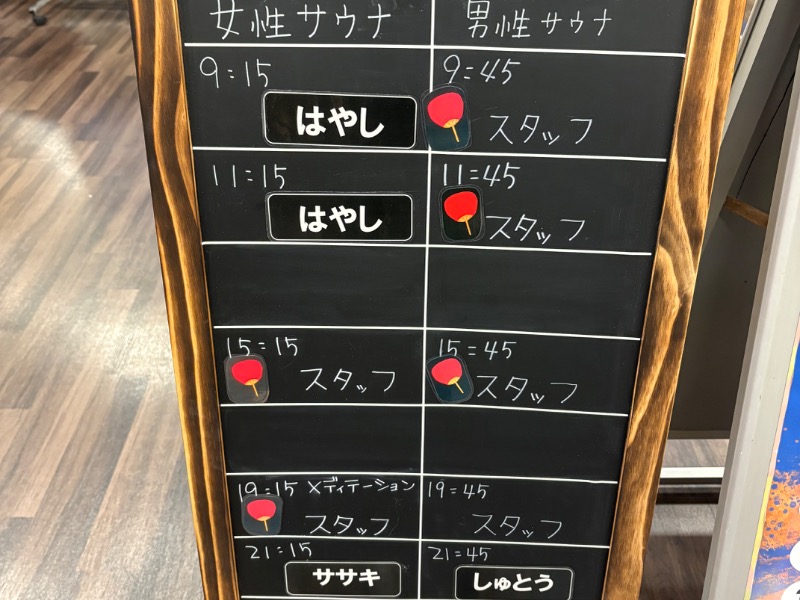 女性サウナ 男性サウナ
9:15 9:45
はやし スタッフ
11:15 11:45
はやし スタッフ
15:15 15:45
スタッフ スタッフ
19:15 メディテーション 19:45
スタッフ スタッフ
21:15 21:45
ササキ しゅとう